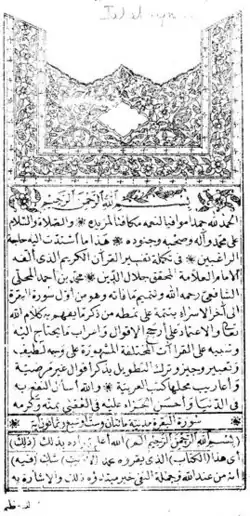 بسم الله الرحمن الرحيم
الحمد لله حمدا موافيا لنعمه مكافئا لمزيده * والصلاة والسلام
على محمد وآله وصحبه وجنوده * هذا ما اشتدت اليه حاجة
الراغبين * في تكملة تفسير القرآن الكريم الذي ألفه
الامام العلامة المحقق جلال الدين * محمد بن أحمد المحلي
الشافعي رحمه الله وتتميم ما فاته وهو من أول سورة البقرة
الى آخر الاسراء بتتمة على نمطه من ذكر ما يفهم به كلام الله
تعالى والاعتماد على أرجح الاقوال واعراب ما يحتاج اليه
وتنبيه على القراآت المختلفة المشهورة على وجه لطيف
وتعبير وجيز وترك التطويل بذكر أقوال غير مرضية
وأعاريب محلها كتب العربية * والله أسأل النفع به
في الدنيا وأحسن الجزاء عليه في العقبى بمنه وكرمه
سورة البقرة مدنية مائتان وست أو سبع وثمانون آية
(بسم الله الرحمن الرحيم الم) الله أعلم بمراده بذلك (ذلك)
أي هذا (الكتاب) الذي يقرؤه محمد (لا ريب) شك (فيه)
أنه من عند الله وجملة النفي خبر مبتدؤه ذلك والاشارة به